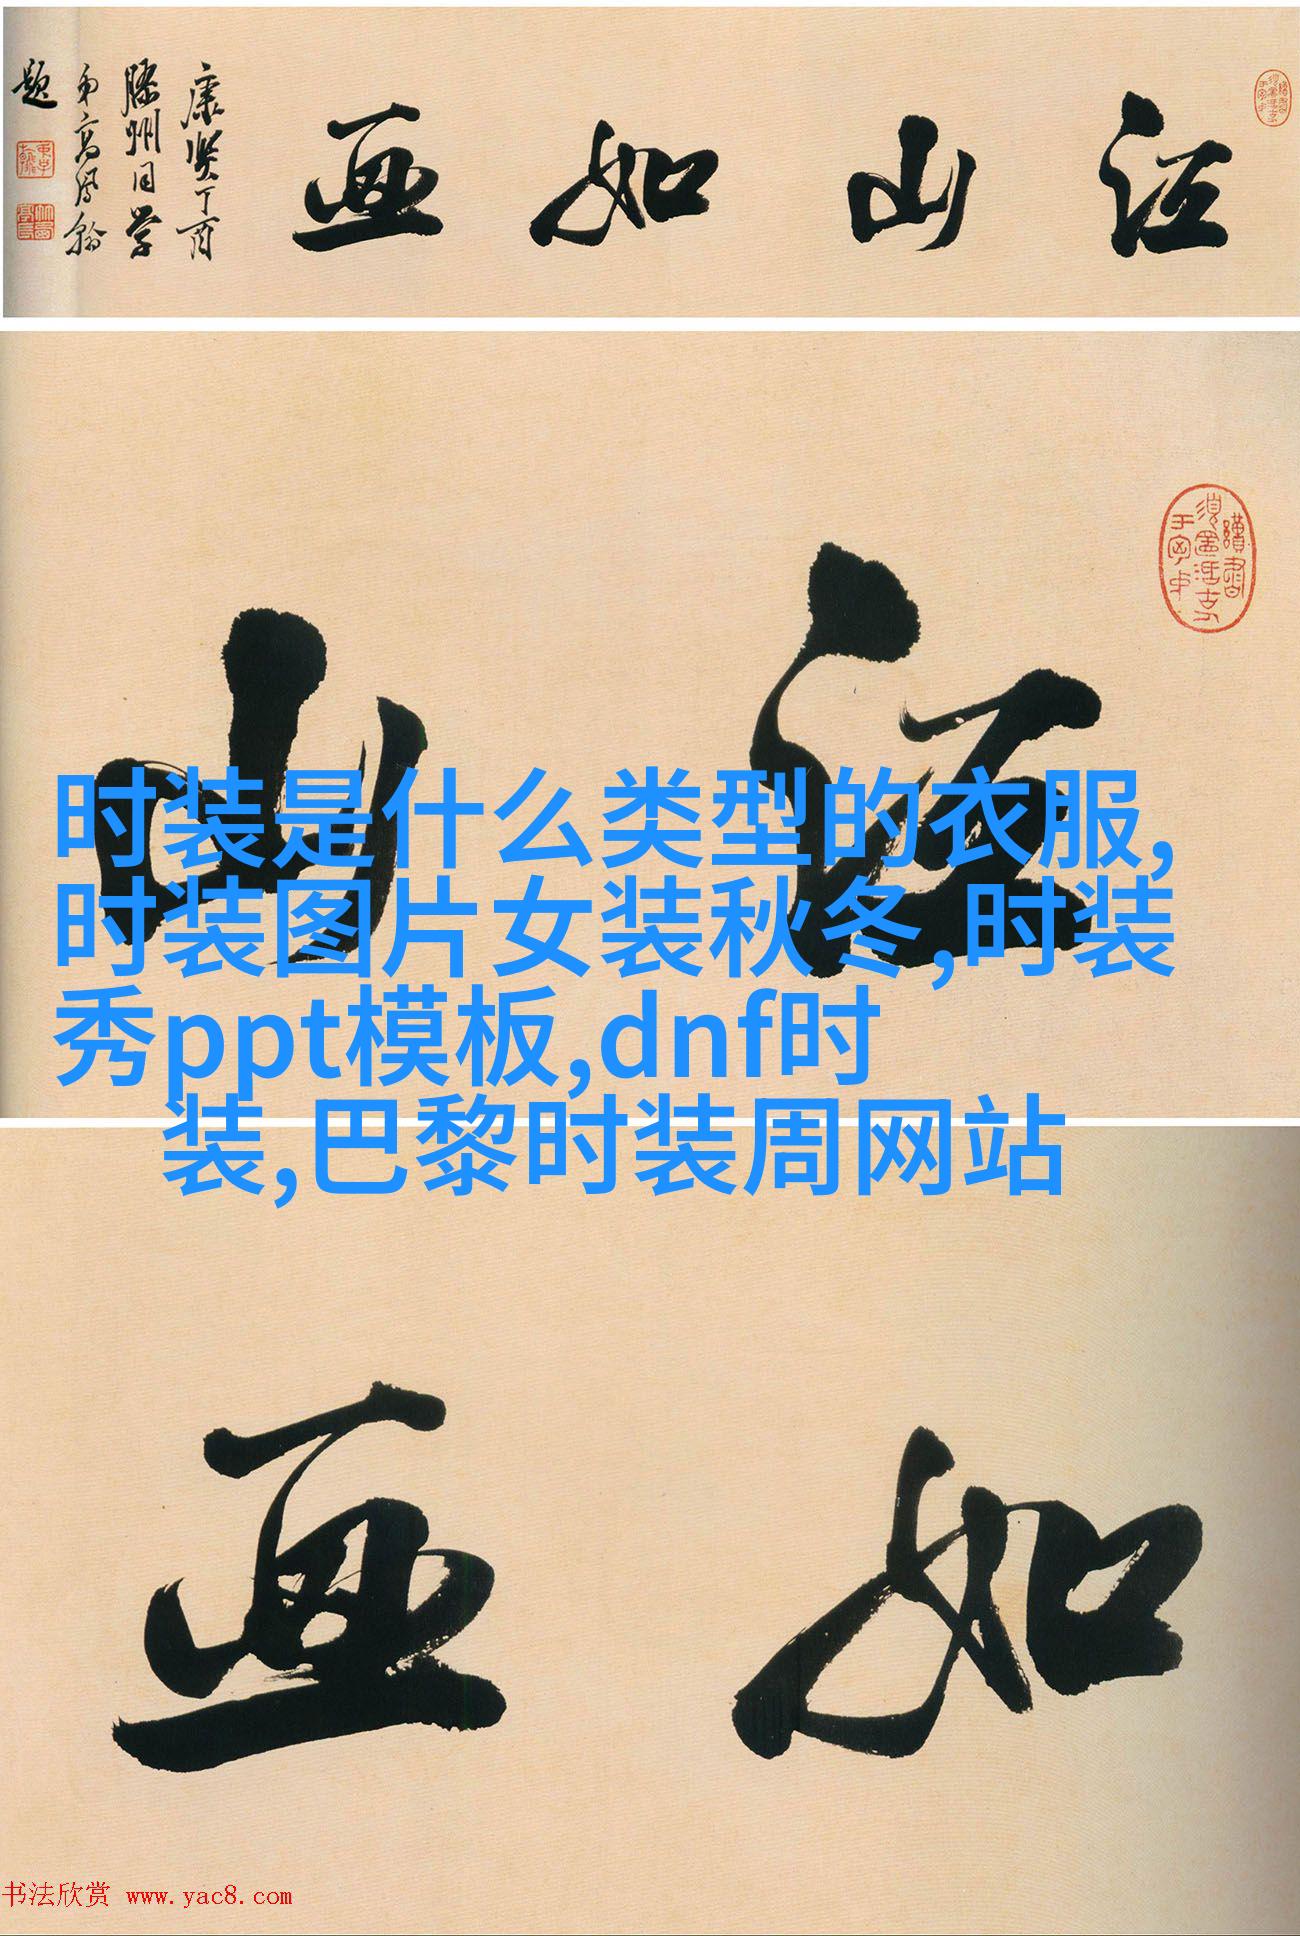 江山如画
康熙丁酉
胶州同学
弟高凤翰
题
时装是什么类型的衣服,
时装图片女装秋冬,时装
秀ppt模板,dnf时
装,巴黎时装周网站
江山
如画
书法欣赏 www.yac8.com